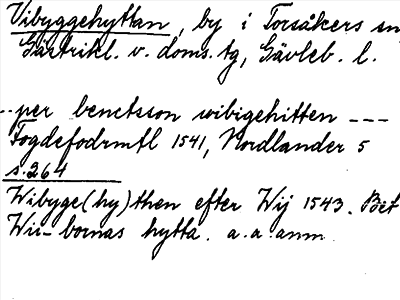 Vibyggehyttan, by i Torsåkers sn
Gästrikl. v. doms. tg, Gävleb. l.
-- per benctsson wibigehitten ---
Fogdefodrmtl 1541, Nordlander 5
s. 264
Wibyge(hy)then efter Wij 1543. Bet
Wii-bornas hytta. a.a. anm.